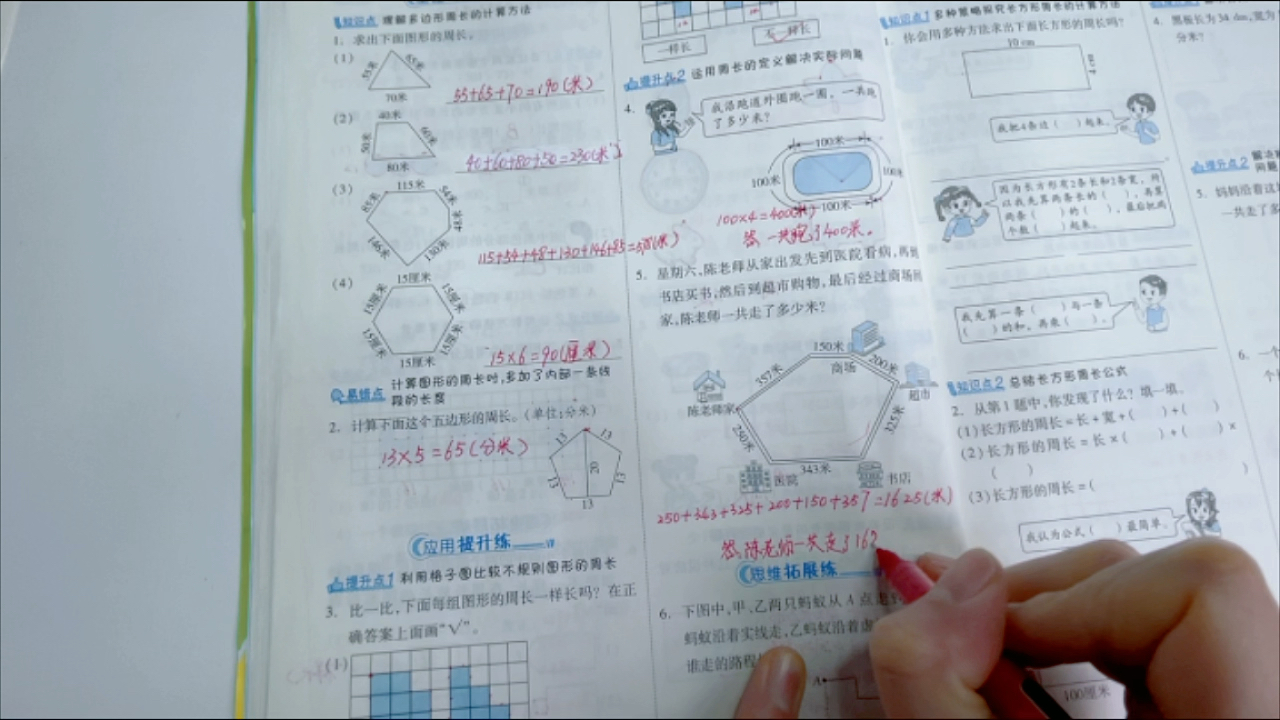 知识点 理解多边形周长的计算方法
1. 求出下面图形的周长。
(1)
55米
65米
70米
55+65+70=190(米)
(2)
40米
50米
60米
80米
40+60+80+50=230(米)
(3)
115米
54米
85米
48米
146米
130米
115+54+48+130+146+85=578(米)
(4)
15厘米
15厘米
15厘米
15厘米
15厘米
15厘米
15×6=90(厘米)
易错点 计算图形的周长时,多加了内部一条线
段的长度
2. 计算下面这个五边形的周长。(单位:分米)
13×5=65(分米)
13
13
20
13
13
13
应用提升练
提升点1 利用格子图比较不规则图形的周长
3. 比一比,下面每组图形的周长一样长吗?在正
确答案上面画“√”。
(1)
一样长
不一样长
提升点2 运用周长的定义解决实际问题
4.
我沿跑道外圈跑一圈,一共跑
了多少米?
100米
100米
100米
100米
100×4=400(米)
答:一共跑了400米。
5. 星期六,陈老师从家出发先到医院看病,再到
书店买书,然后到超市购物,最后经过商场回
家,陈老师一共走了多少米?
150米
357米
商场
200米
超市
陈老师家
250米
325米
343米
医院
书店
250+343+325+200+150+357=1625(米)
答:陈老师一共走了162
思维拓展练
6. 下图中,甲、乙两只蚂蚁从 A 点
蚂蚁沿着实线走,乙蚂蚁沿着虚
谁走的路程
A
100厘米
知识点1 多种策略探究长方形周长的计算方法
1. 你会用多种方法求出下面长方形的周长吗?
10 cm
4 cm
我把4条边( )起来。
因为长方形有2条长和2条宽,所
以我先算两条长的( ),再算
两条( )的( ),最后把两
个数( )起来。
我先算一条( )与一条
( )的和,再乘( )。
知识点2 总结长方形周长公式
2. 从第1题中,你发现了什么?填一填。
(1)长方形的周长=长+宽+( )+( )
(2)长方形的周长=长×( )+( )×
( )
(3)长方形的周长=( )
我认为公式( )最简单。
4. 黑板长为34 dm,宽为
分米?
提升点2 解决
问题
5. 妈妈沿着这
一共走了多
6. 一个